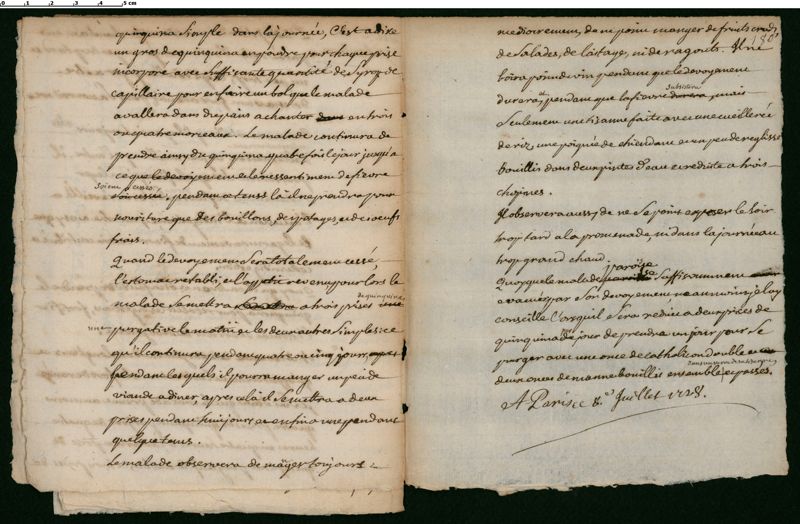 quinquina simple dans la journée, c'est a dire
un gros de quinquina en poudre pour chaque prise
incorporé avec suffisante quantité de syrop de
capillaire pour en faire un bol que le malade
avallera dans du pain a chanter en trois
ou quatre morceaux. Le malade continura de
prendre ainsy du quinquina quatre fois le jour jusqu'a
ce que le devoyement et le ressentiment de fievre
soient cessé, pendant ce tems là il ne prendra pour
nouriture que des bouillons, des potages, et des oeufs
frais.
Quand le devoyement sera totalement cessé,
l'estomac retabli, et l'appetit revenu pour lors le
malade se mettra a trois prises de quinquina
une purgative le matin et les deux autres simples: ce
qu'il continura pendant quatre ou cinq jours,
pendant lesquels il pourra manger un peu de
viande a diner, apres cela il se mettra a deux
prises pendant huit jours et enfin a une pendant
quelque tems.
Le malade observera de manger toujours
180
mediocrement, de ne point manger de fruits cruds
de salades, de laitage, ni de ragouts. Il ne
boira point de vin pendant que le devoyement
durera et pendant que la fievre subsistera, mais
seulement une tisanne faite avec une cueillerée
de riz, une poignée de chiendent et un peu de reglisse
bouillis dans deux pintes d'eau et reduite a trois
chopines.
Il observera aussy de ne se point exposer le soir
trop tard a la promenade, ni dans la journée au
trop grand chaud.
Quoyque le malade paroisse suffisamment
evacué par son devoyement neanmoins je luy
conseille lorsqu'il sera reduit a deux prises de
quinquina par jour de prendre un jour pour se
purger avec une once de catholicon double et
deux onces de manne bouillis ensemble et passés.
A Paris ce 8.e Juillet 1728.